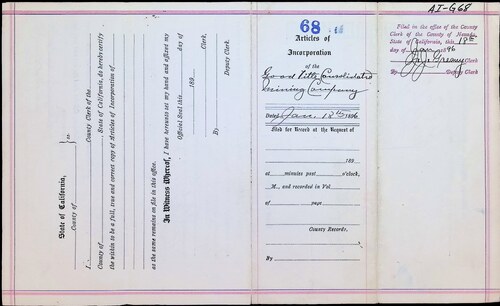 AI-G68
State of California,
County of
ss.
I, County Clerk of the
County of , State of California, do hereby certify
the within to be a full, true and correct copy of Articles of Incorporation of
as the same remains on file in this office.
In Witness Whereof, I have hereunto set my hand and affixed my
Official Seal this day of
189
Clerk.
By
Deputy Clerk.
68
Articles of
Incorporation
of the
Consolidated
Mining Company
Dated Jan. 18th 1896
filed for Record at the Request of
189
at minutes past o'clock,
M., and recorded in Vol
of page
County Records.
By
Filed in the office of the County
Clerk of the County of Nevada,
State of California, this 18th
day of Jan 1896
Clerk
By Deputy Clerk